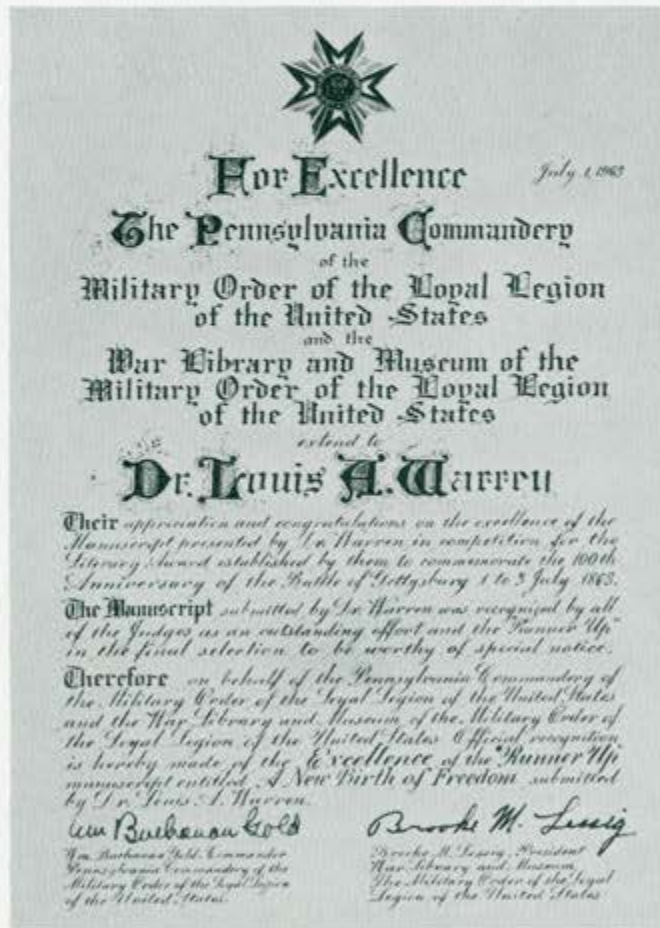 For Excellence
July 1, 1963
The Pennsylvania Commandery
of the
Military Order of the Loyal Legion
of the United States
and the
War Library and Museum of the
Military Order of the Loyal Legion
of the United States
extend to
Dr. Louis A. Warren
Their appreciation and congratulations on the excellence of the
Manuscript presented by Dr. Warren in competition for the
Literary Award established by them to commemorate the 100th
Anniversary of the Battle of Gettysburg 1 to 3 July 1863.
The Manuscript submitted by Dr. Warren was recognized by all
of the Judges as an outstanding effort and the "Runner Up"
in the final selection to be worthy of special notice.
Therefore on behalf of the Pennsylvania Commandery of
the Military Order of the Loyal Legion of the United States
and the War Library and Museum of the Military Order of
the Loyal Legion of the United States Official recognition
is hereby made of the Excellence of the "Runner Up"
manuscript entitled A New Birth of Freedom submitted
by Dr. Louis A. Warren.
Wm Buchanan Gold
Brooke M. Lessig
Wm. Buchanan Gold, Commander
Pennsylvania Commandery of the
Military Order of the Loyal Legion
of the United States.
Brooke M. Lessig, President
War Library and Museum
The Military Order of the Loyal
Legion of the United States